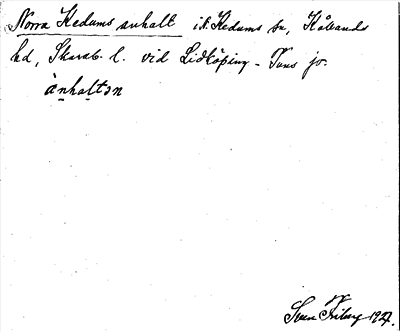 Norra Kedums anhalt i N. Kedums sn, Kållands
hd, Skarab. l. vid Lidköping - Tuns jv.
ànhal̥tɔn
Sven Friberg 1927.